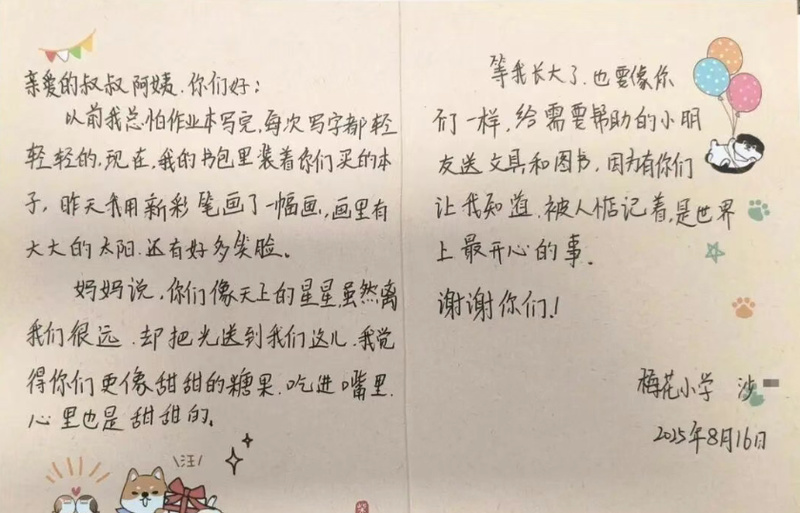 亲爱的叔叔阿姨.你们好:
以前我总怕作业本写完,每次写字都轻
轻轻的,现在,我的书包里装着你们买的本
子,昨天我用新彩笔画了一幅画,画里有
大大的太阳.还有好多笑脸。
妈妈说,你们像天上的星星,虽然离
我们很远.却把光送到我们这儿.我觉
得你们更像甜甜的糖果.吃进嘴里.
心里也是甜甜的。
汪
等我长大了.也要像你
们一样,给需要帮助的小朋
友送文具和图书,因为有你们
让我知道.被人惦记着,是世界
上最开心的事.
谢谢你们!
梅花小学 沙
2025年8月16日